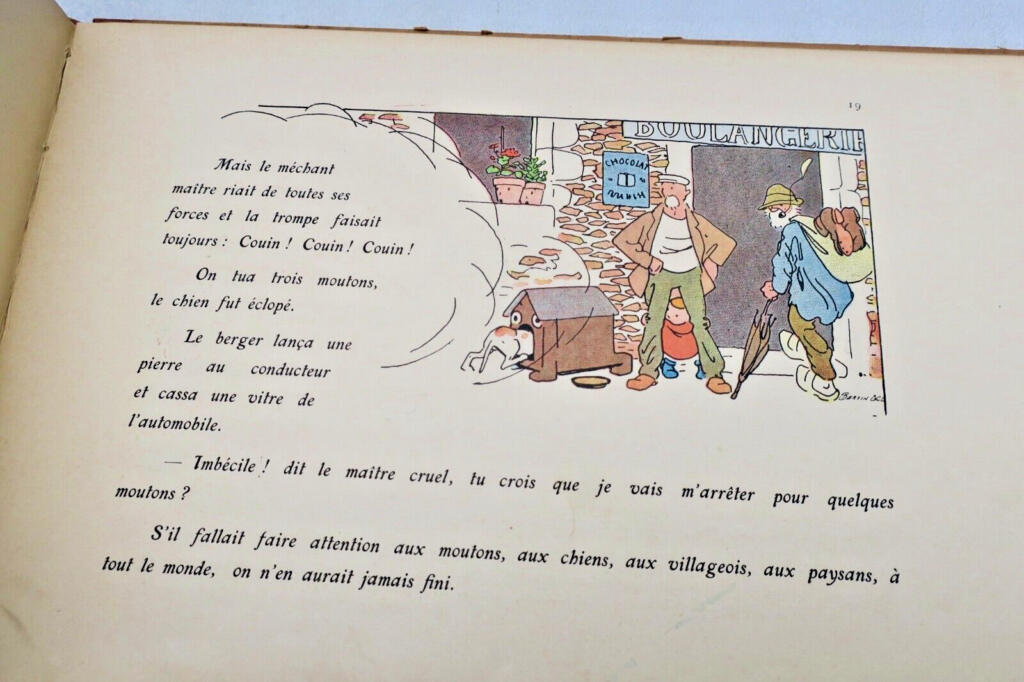 19
BOULANGERIE
CHOCOLAT
Mais le méchant
maître riait de toutes ses
forces et la trompe faisait
toujours : Couin ! Couin ! Couin !
On tua trois moutons,
le chien fut éclopé.
Le berger lança une
pierre au conducteur
et cassa une vitre de
l'automobile.
— Imbécile ! dit le maître cruel, tu crois que je vais m'arrêter pour quelques
moutons ?
S'il fallait faire attention aux moutons, aux chiens, aux villageois, aux paysans, à
tout le monde, on n'en aurait jamais fini.